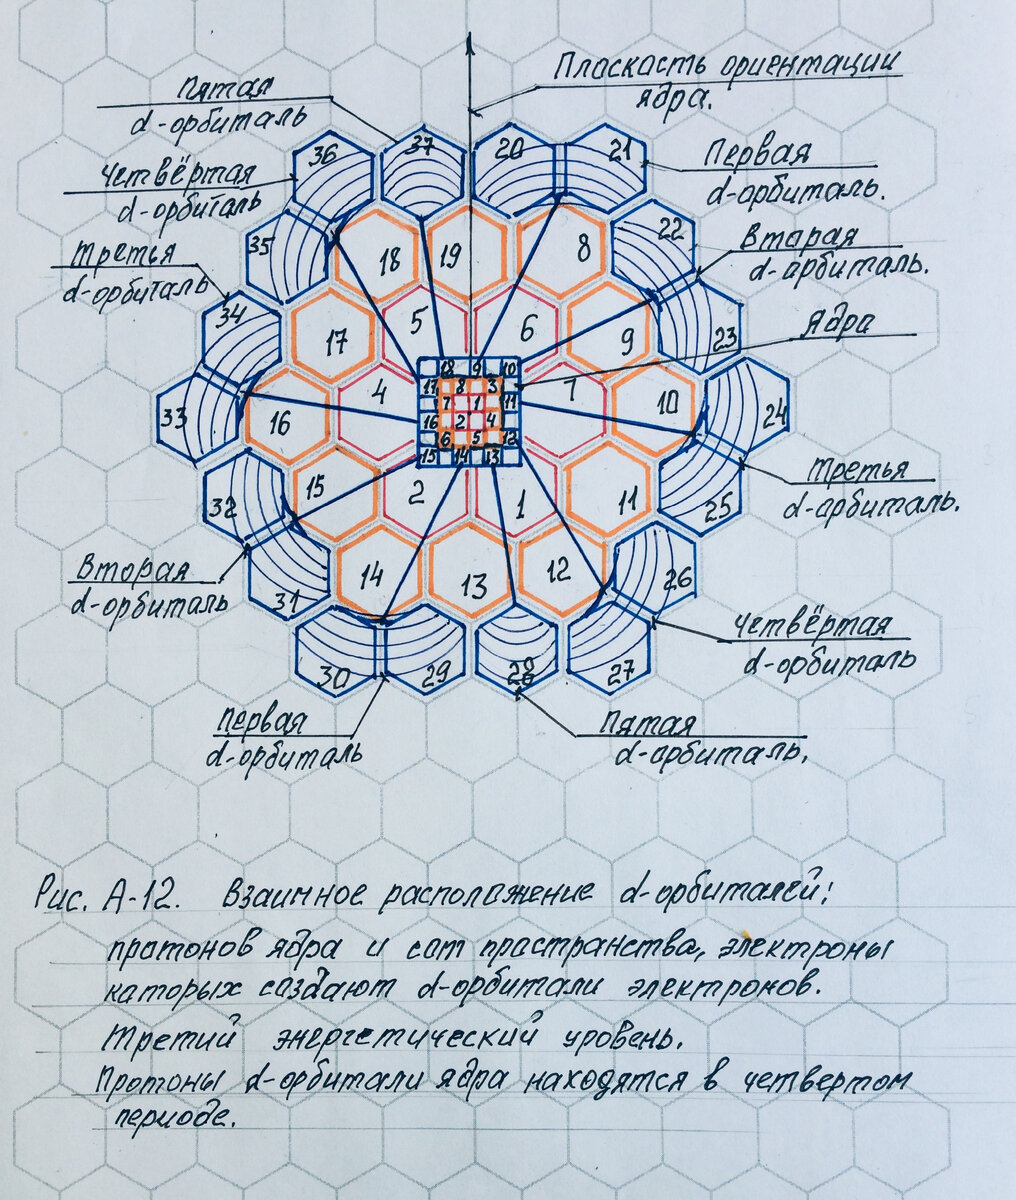 Пласкасть ориентации
ядра.
Пятая
d-орбиталь
36
37
20
21
Первая
d-орбиталь.
Четвёртая
d-орбиталь
35
18
19
8
22
Вторая
d-арбиталь.
Третья
d-орбиталь
34
17
5
6
9
23
Ядра
18
9
10
17
8
3
33
16
4
7
1
11
7
10
24
16
2
4
6
5
12
15
14
13
32
15
2
1
11
25
Третья
d-арбиталь.
Вторая
d-орбиталь
31
14
13
12
26
Четвёртая
d-орбиталь
30
29
28
27
Первая
d-орбиталь
Пятая
d-арбиталь.
Рис. А-12. Взаимное расположение d-орбиталей:
пратонов ядра и сот пространства, электроны
каторых создают d-орбитали электронов.
Третий энергетический уровень.
Протоны d-орбитали ядра находятся в четвертом
периоде.